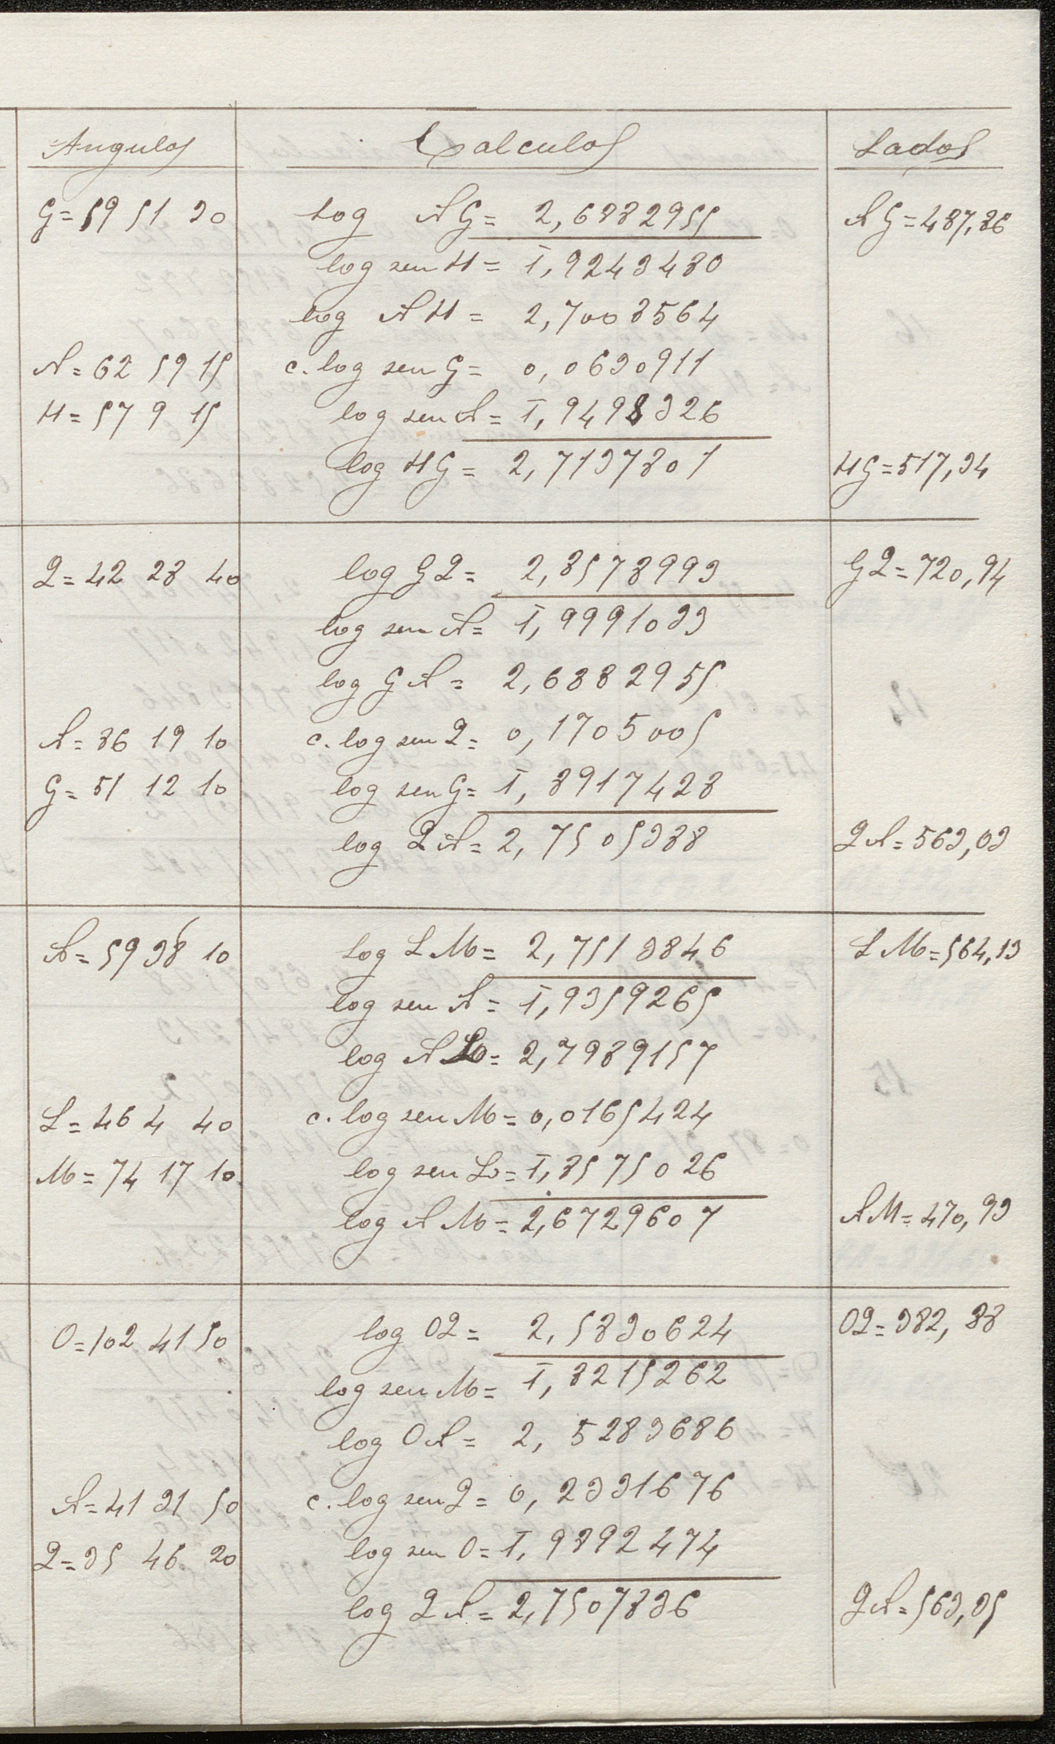 Angulos Calculos Lados
G=59 51 30 Log AG= 2,6882955 AG=487,86
log sen H= 1̄,9243480
log AH= 2,7008564
A=62 59 15 c. log sen G= 0,0630911
H=57 9 15 log sen A= 1̄,9498326
log HG= 2,7137801 HG=517,34
Q=42 28 40 log GQ= 2,8578993 GQ=720,94
log sen A= 1̄,9991033
log GA= 2,6882955
A=86 19 10 c. log sen Q= 0,1705005
G=51 12 10 log sen G= 1̄,8917428
log QA= 2,7505388 QA=563,03
A=59 38 10 Log LM= 2,7513846 LM=564,13
log sen A= 1̄,9359265
log AL= 2,7989157
L=46 4 40 c. log sen M= 0,0165424
M=74 17 10 log sen L= 1̄,8575026
log AM= 2,6729607 AM=470,93
O=102 41 50 log OQ= 2,5830624 OQ=382,88
log sen M= 1̄,8215262
log OA= 2,5283686
A=41 31 50 c. log sen Q= 0,2331676
Q=35 46 20 log sen O= 1̄,9892474
log QA= 2,7507836 QA=563,35